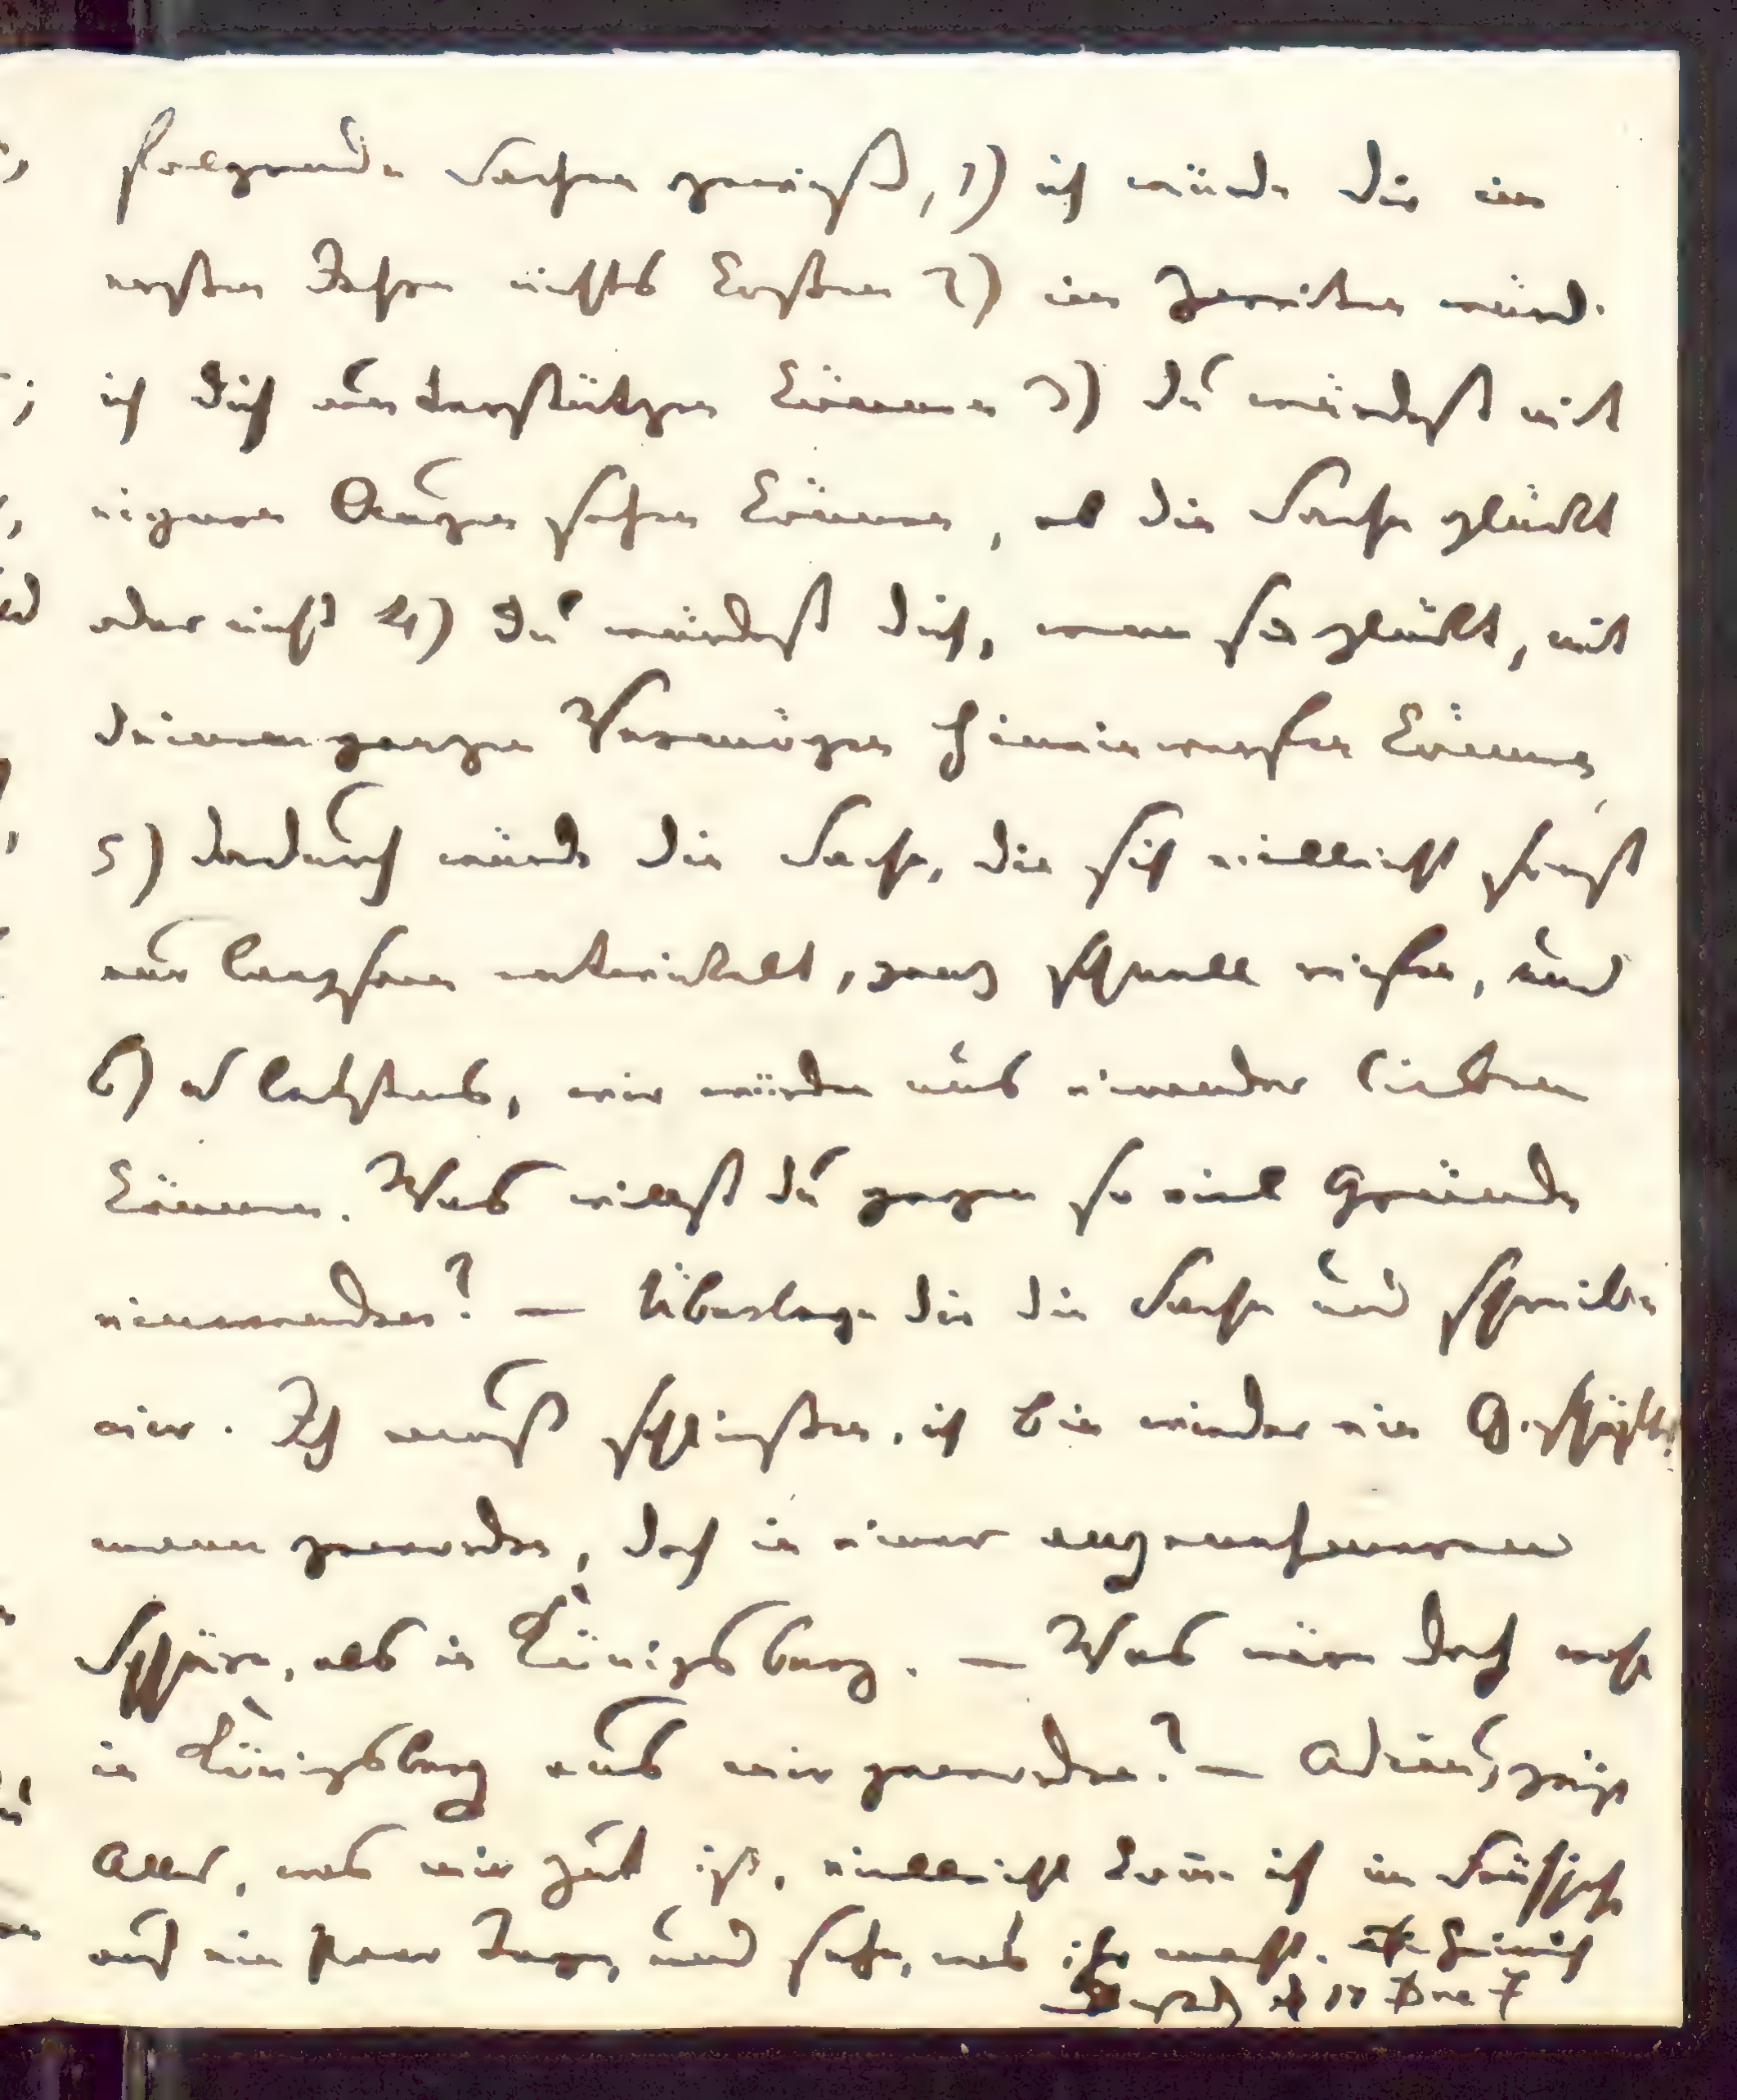 folgende Sachen gewiß, 1) ich würde dir im
ersten Jahre nichts kosten 2) im zweiten würde
ich dich unterstützen können 3) du würdest mit
eignen Augen sehen können, ob die Sache glückt
oder nicht 4) du würdest dich, wenn sie glückt, mit
deinem ganzen Vermögen hineinwerfen können,
5) dadurch würde die Sache, die sich vielleicht sonst
nur langsam entwickelt, ganz schnell reifen, und
6) letztens, wir würden uns einander lieben
können. Was willst du gegen so viel Gründe
einwenden? — Überlege dir die Sache und schreibe
mir. Ich muß schließen, ich bin wieder ein Geschäfts
mann geworden, doch in einer angenehmeren
Sphäre, als in Königsberg. — Was wäre doch wohl
in Königsberg aus mir geworden? — Adieu, grüße
Alles, was mir gut ist, vielleicht komme ich im Frühjahr
auf ein paar Tage, und sehe, was ihr macht. Heinrich
17 7